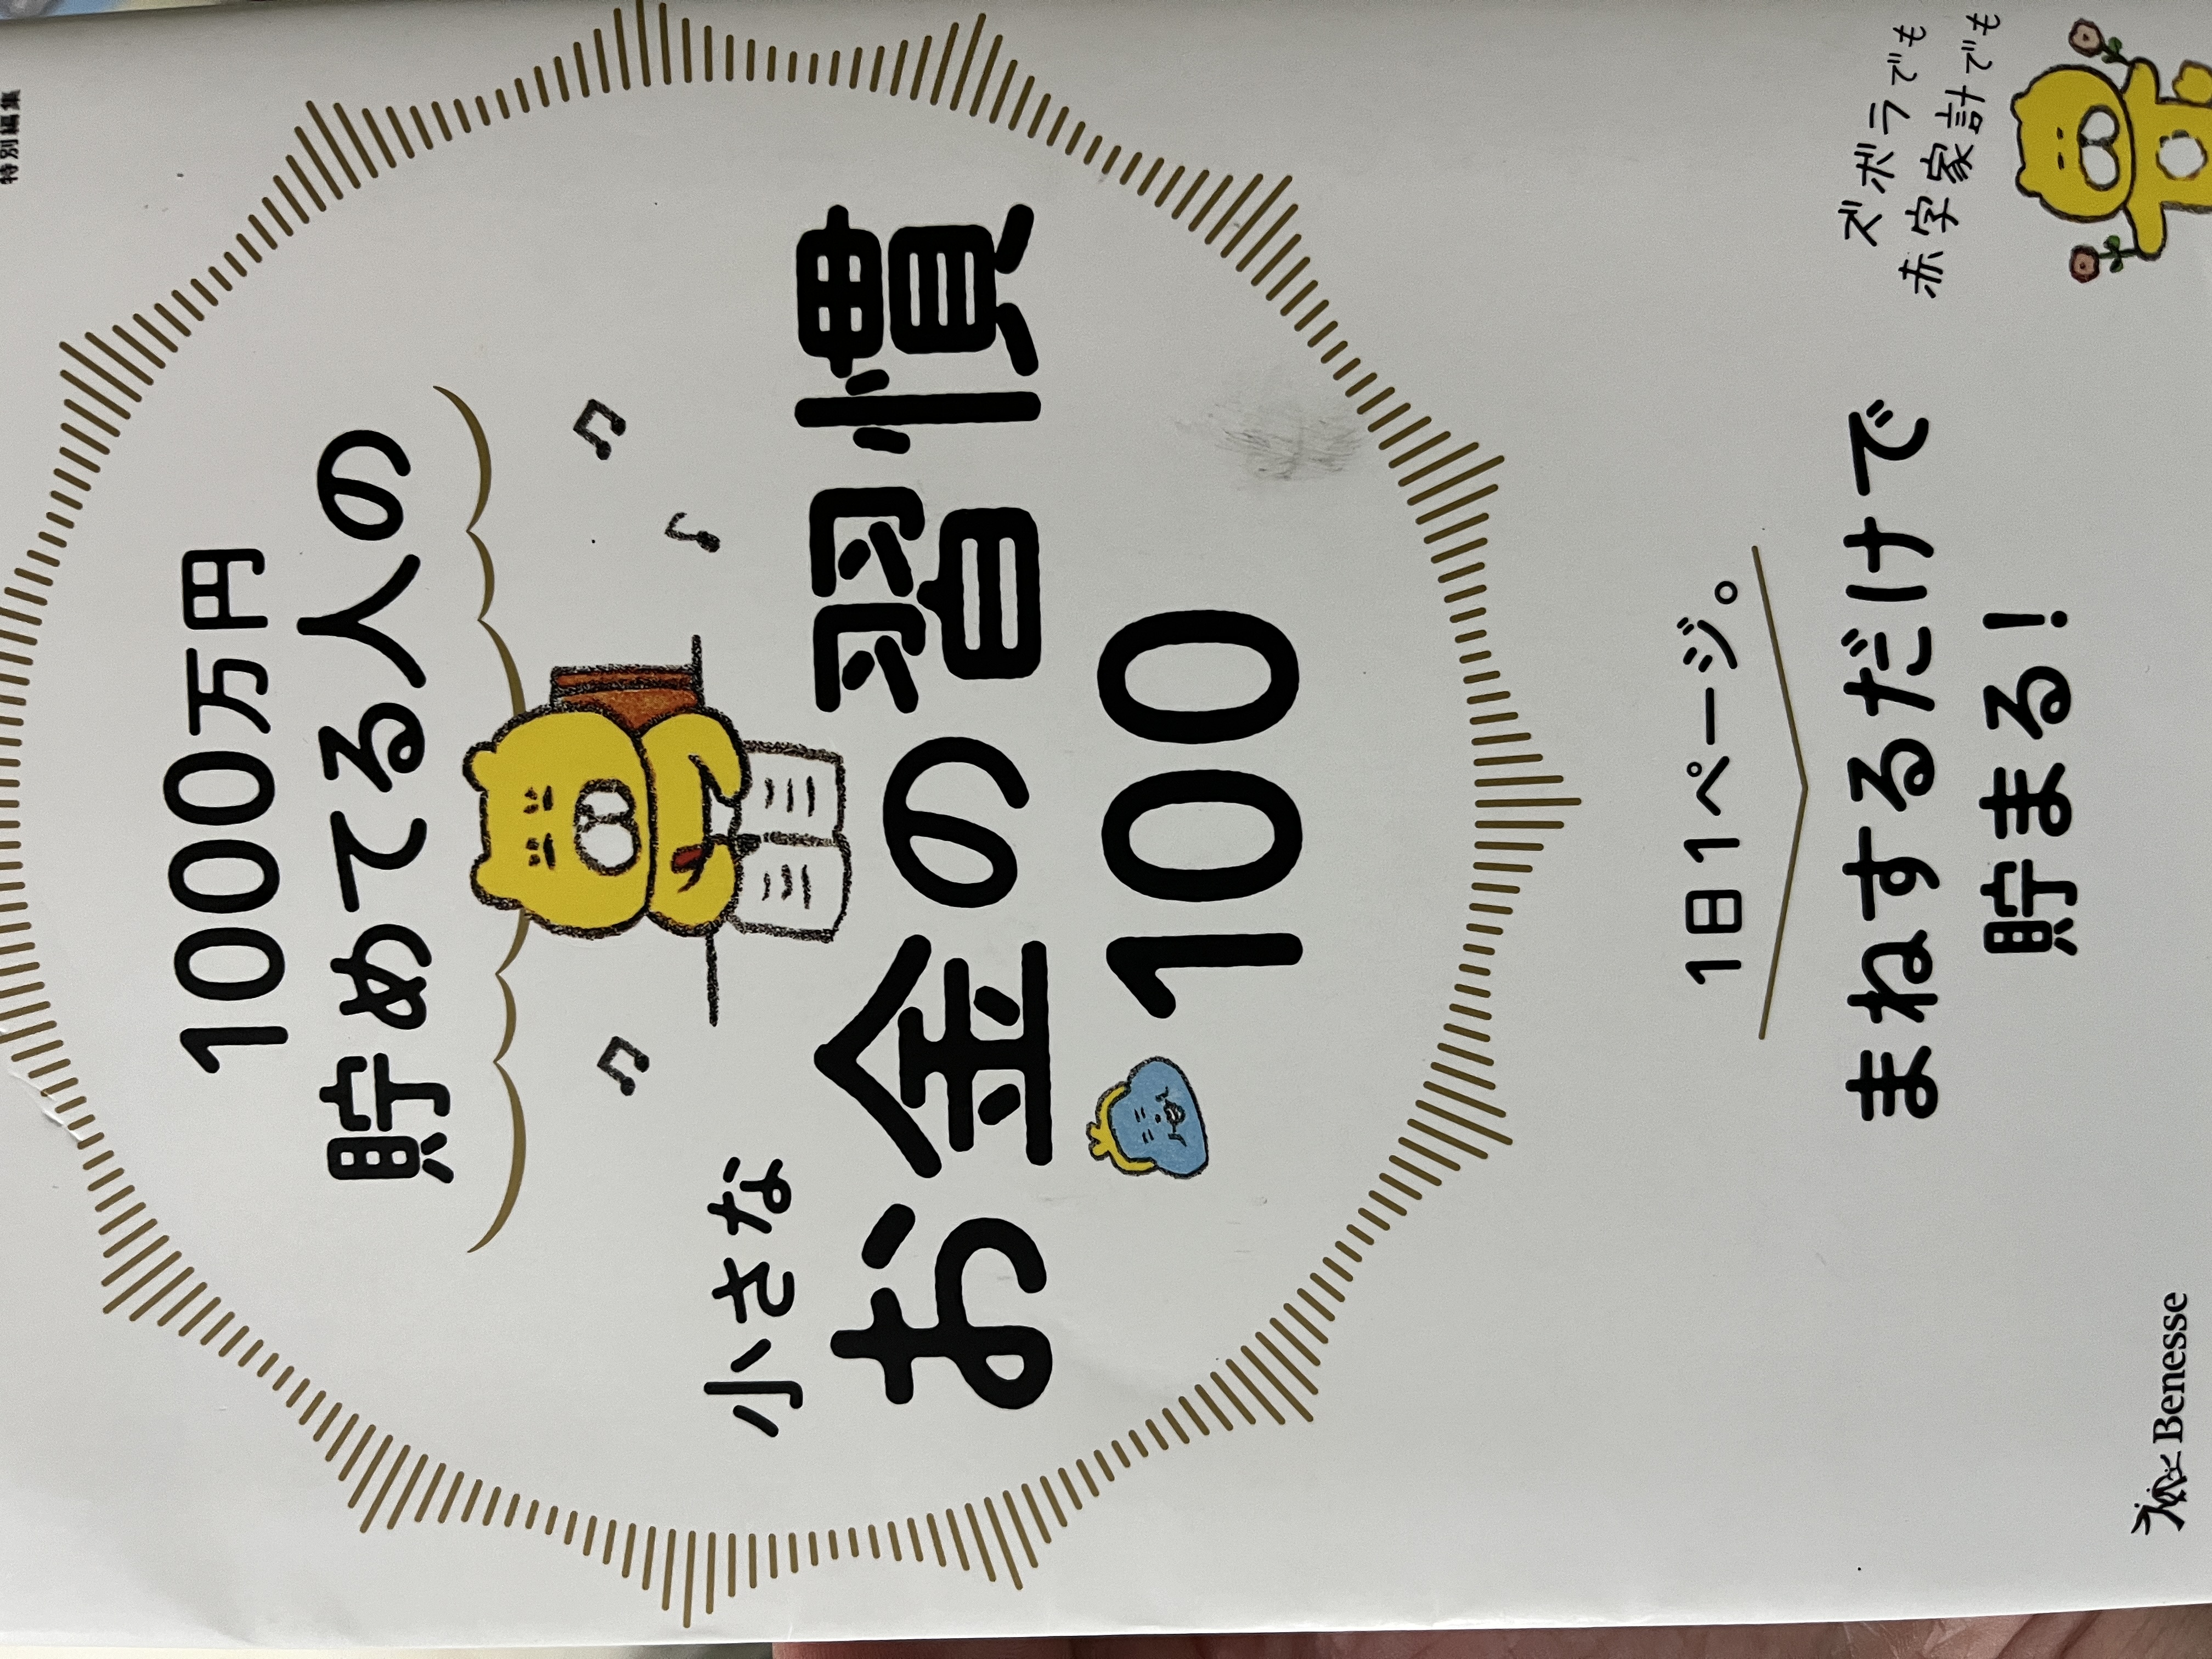 特別編集
1000万円
貯めてる人の
小さな
お金の習慣
100
1日1ページ。
まねするだけで
貯まる!
ズボラでも
赤字家計でも
Benesse